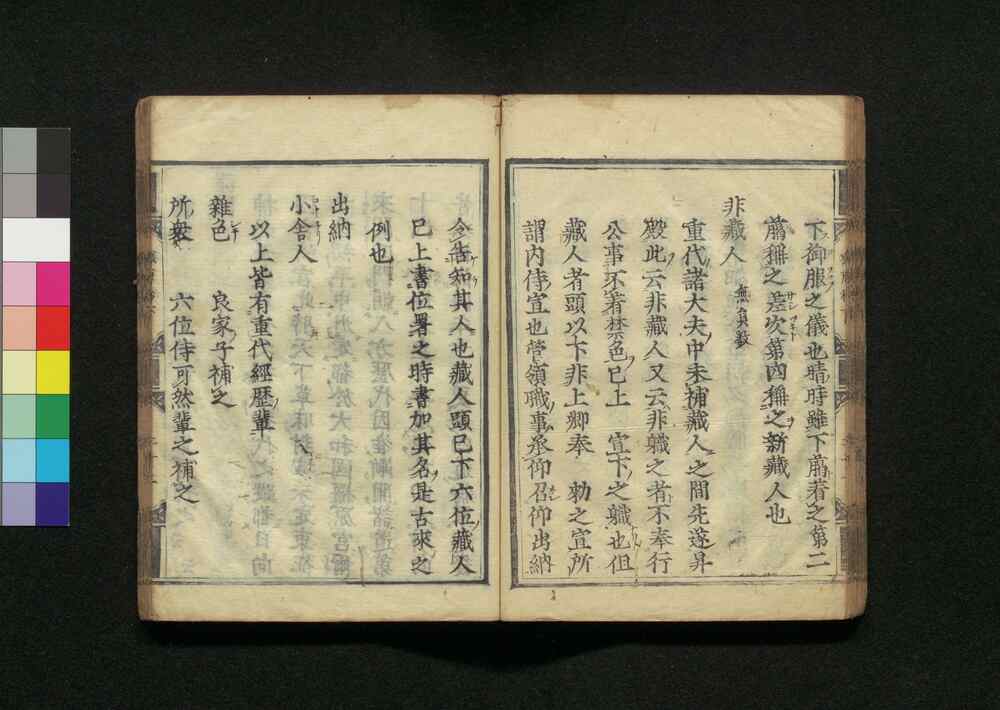 下御服之儀也晴時雖下﨟着之第二
﨟稱之差次第四稱之新藏人也
非藏人 無員數
重代諸大夫中未補藏人之間先遂昇
殿此云非藏人又云非職之者不奉行
公事不著禁色巳上 宣下之職也但
藏人者頭以下非上卿奉 勅之宣所
謂内侍宣也管領職事丞仰召仰出納
令告知其人也藏人頭巳下六位藏人
巳上書位署之時書加其名是古來之
例也
出納
小舍人
以上皆有重代經歴輩
雜色 良家子補之
所衆 六位侍可然輩之補之